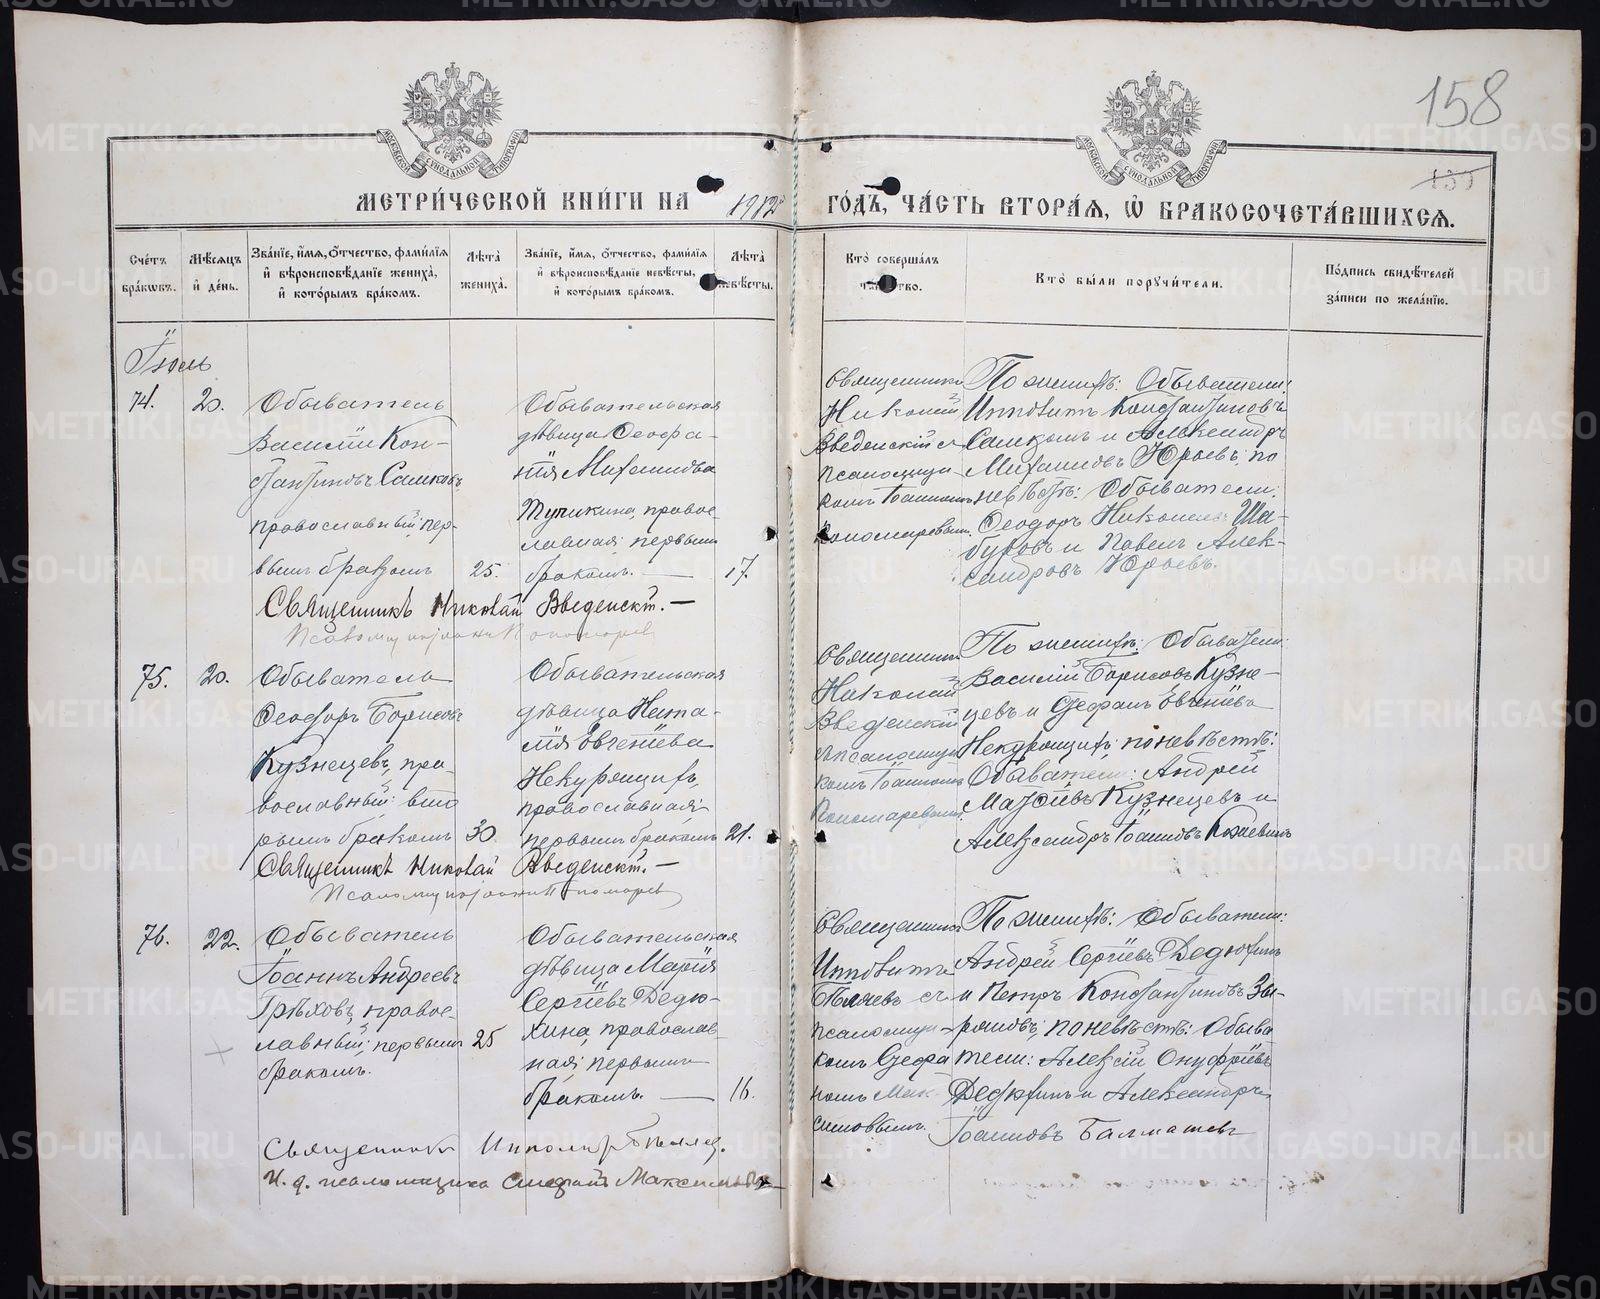 158
МОСКОВСКОЙ СѴНОДАЛЬНОЙ ТИПОГРАФІИ
МОСКОВСКОЙ СѴНОДАЛЬНОЙ ТИПОГРАФІИ
МЕТРИ́ЧЕСКОЙ КНИ́ГИ НА 1912 ГО́ДЪ, ЧА́СТЬ ВТОРА́Я, Ѿ БРАКОСОЧЕТА́ВШИХСЯ.
Сче́тъ бра́ковъ.
Мѣ́сяцъ и де́нь.
Зва́нїе, и́мя, о́тчество, фами́лїя и вѣроисповѣ́данїе жениха̀, и кото́рымъ бра́комъ.
Лѣ́та жениха̀.
Зва́нїе, и́мя, о́тчество, фами́лїя и вѣроисповѣ́данїе невѣ́сты, и кото́рымъ бра́комъ.
Лѣ́та невѣ́сты.
Кто̀ соверша́лъ
Кто̀ бы́ли поручи́тели.
По́дпись свидѣ́телей за́писи по жела́нїю.
Іюль
74.
20.
Обыватель
Василій Кон-
стантиновъ Самковъ,
православный; пер-
вымъ бракомъ
25.
Обывательская
дѣвица Феофа-
нія Михаилова
православная; первымъ
бракомъ. —
17.
Священникъ
Николай
Введенскій съ
псаломщи-
комъ Іоанномъ
Пономаревымъ
По женихѣ: Обыватели:
Ипполитъ Константиновъ
Самковъ и Александръ
Михаиловъ Юрьевъ; по
невѣстѣ: Обыватели:
Феодоръ Николаевъ Ша-
буровъ и Павелъ Алек-
сандровъ Юрьевъ.
Священникъ Николай Введенскій. —
Псаломщикъ Іоаннъ Пономаревъ
75.
20.
Обыватель
Феодоръ Борисовъ
Кузнецевъ, пра-
вославный; вто
рымъ бракомъ
30.
Обывательская
дѣвица Ната-
лія Евгеніева
православная;
первымъ бракомъ
21.
Священникъ
Николай
Введенскій
съ псаломщи
комъ Іоанномъ
Пономаревымъ
По женихѣ: Обыватели:
Василій Борисовъ Кузне-
цевъ и Стефанъ Евгеніевъ
по невѣстѣ:
Обыватели: Андрей
Матѳіевъ Кузнецевъ и
Александръ Іоанновъ
Священникъ Николай Введенскій. —
Псаломщикъ Іоаннъ Пономаревъ
76.
22.
Обыватель
Іоаннъ Андреевъ
Грѣховъ, правос-
лавный; первымъ
бракомъ.
25
Обывательская
дѣвица Марія
Сергіевъ Дедю-
хина, православ
ная; первымъ
бракомъ. —
16.
Священникъ
Ипполитъ
Бѣляевъ съ
псаломщи-
комъ Стефа
номъ Мак-
симовымъ.
По женихѣ: Обыватели:
Андрей Сергіевъ Дедюхинъ
и Петръ Константиновъ Зы-
ряновъ; по невѣстѣ: Обыва
тели: Алексій Онуфріевъ
Дедюхинъ и Александръ
Іоанновъ Балмашевъ
Священникъ Ипполитъ Бѣляев.
И. д. псаломщика Стефанъ Максимовъ
METRIKI.GASO-URAL.RU